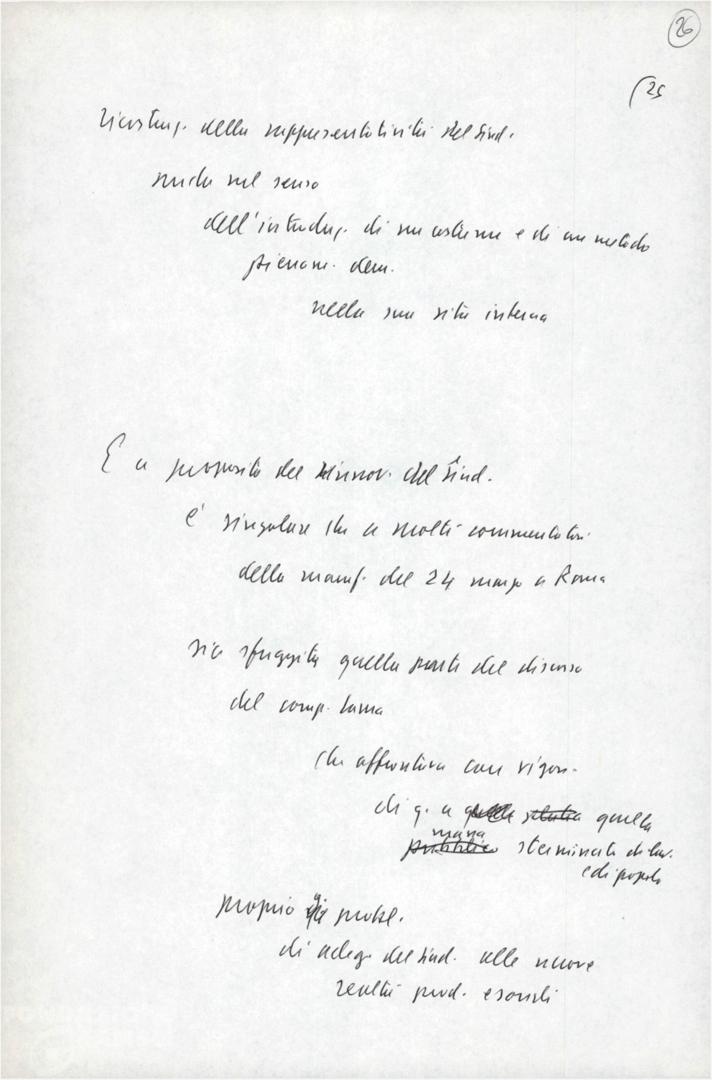 26
25
ricostruz. della rappresentatività del Sind.
anche nel senso
dell'introduz. di un costume e di un metodo
pienam. dem.
nella sua vita interna
E a proposito del rinnov. del Sind.
è singolare che a molti commentatori
della manif. del 24 marzo a Roma
sia sfuggita quella parte del discorso
del comp. Lama
che affrontava con vigore
di q. a quella
marea
sterminata di lav.
e di popolo
proprio i probl.
di adeg. del Sind. alle nuove
realtà prod. e sociali